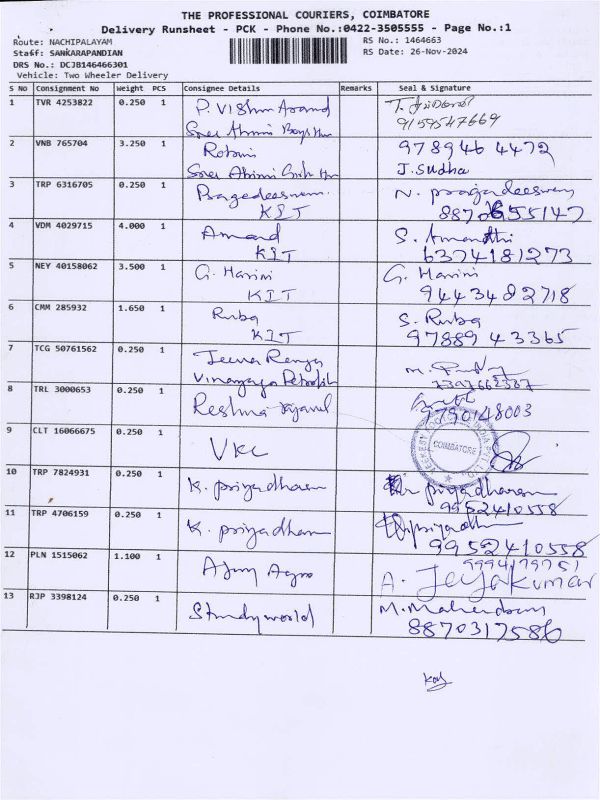 THE PROFESSIONAL COURIERS, COIMBATORE
Delivery Runsheet - PCK - Phone No.:0422-3505555 - Page No.:1
Route: NACHIPALAYAM
RS No.: 1464663
Staff: SANKARAPANDIAN
RS Date: 26-Nov-2024
DRS No.: DCJB146466301
Vehicle: Two Wheeler Delivery
S No Consignment No Weight PCS Consignee Details Remarks Seal & Signature
1 TVR 4253822 0.250 1 P. Vishnu Anand
9159547669
2 VNB 765704 3.250 1 978946 4472
J. Sudha
3 TRP 6316705 0.250 1 N. pragadeeswary
KIT 8870655147
4 VDM 4029715 4.000 1 Anand S.
KIT 6374181273
5 NEY 40158062 3.500 1 G. Harini G. Harini
KIT 9443482718
6 CMM 285932 1.650 1 Ruba S. Ruba
KIT 97889 43365
7 TCG 50761562 0.250 1
8 TRL 3000653 0.250 1 Reshma
9790148003
9 CLT 16066675 0.250 1 VKC COIMBATORE
10 TRP 7824931 0.250 1 K. priyadharsan priyadharsan
9952410558
11 TRP 4706159 0.250 1 K. priyadharsan
9952410558
12 PLN 1515062 1.100 1 Agro 9994179751
A. Jeyakumar
13 RJP 3398124 0.250 1 Studyworld M.
8870317586